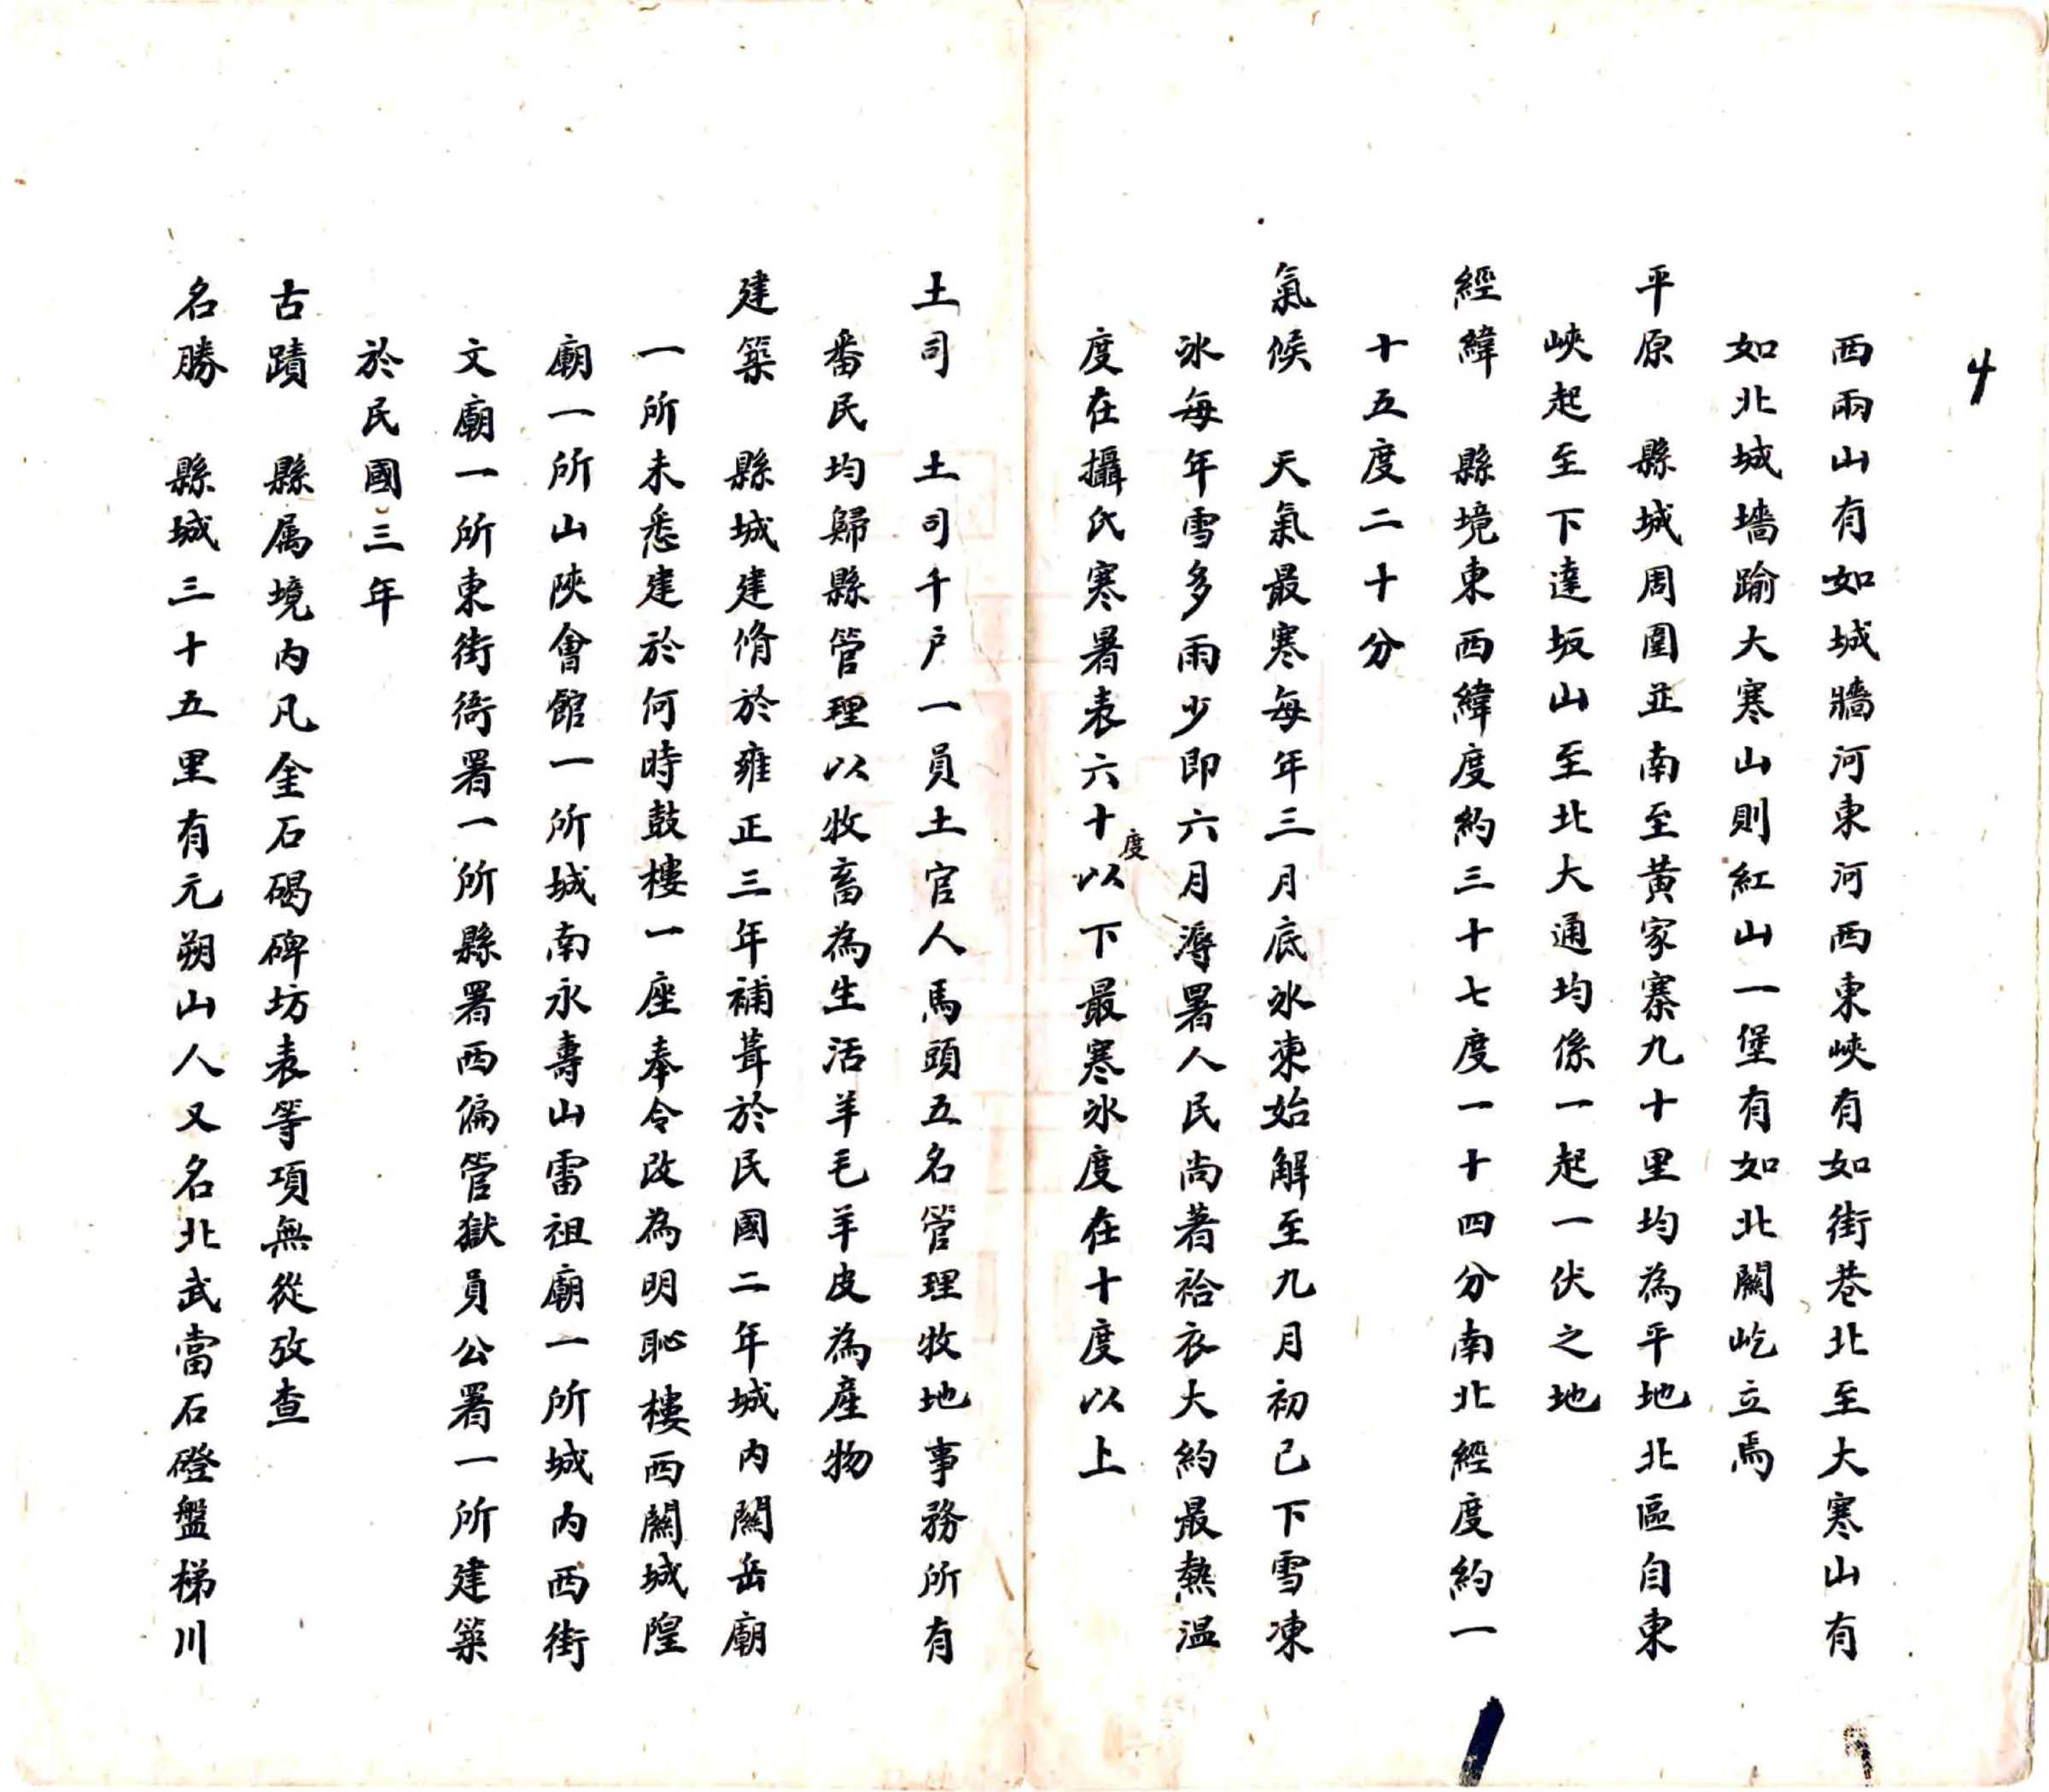 4
西兩山有如城牆河東河西東峽有如街巷北至大寒山有
如北城墻踰大寒山則紅山一堡有如北關屹立焉
平原　縣城周圍並南至黃家寨九十里均為平地北區自東
峽起至下達坂山至北大通均係一起一伏之地
經緯　縣境東西緯度約三十七度一十四分南北經度約一
十五度二十分
氣候　天氣最寒每年三月底冰凍始解至九月初已下雪凍
冰每年雪多雨少即六月溽暑人民尚著袷衣大約最熱温
度在攝氏寒暑表六十度以下最寒冰度在十度以上
土司　土司千戶一員土官人馬頭五名管理牧地事務所有
番民均歸縣管理以牧畜為生活羊毛羊皮為產物
建築　縣城建脩於雍正三年補葺於民國二年城內關岳廟
一所未悉建於何時鼓樓一座奉令改為明恥樓西關城隍
廟一所山陝會館一所城南永壽山雷祖廟一所城内西街
文廟一所東街衙署一所縣署西偏管獄員公署一所建築
於民國三年
古蹟　縣属境内凡金石碣碑坊表等項無從攷查
名勝　縣城三十五里有元朔山人又名北武當石磴盤梯川